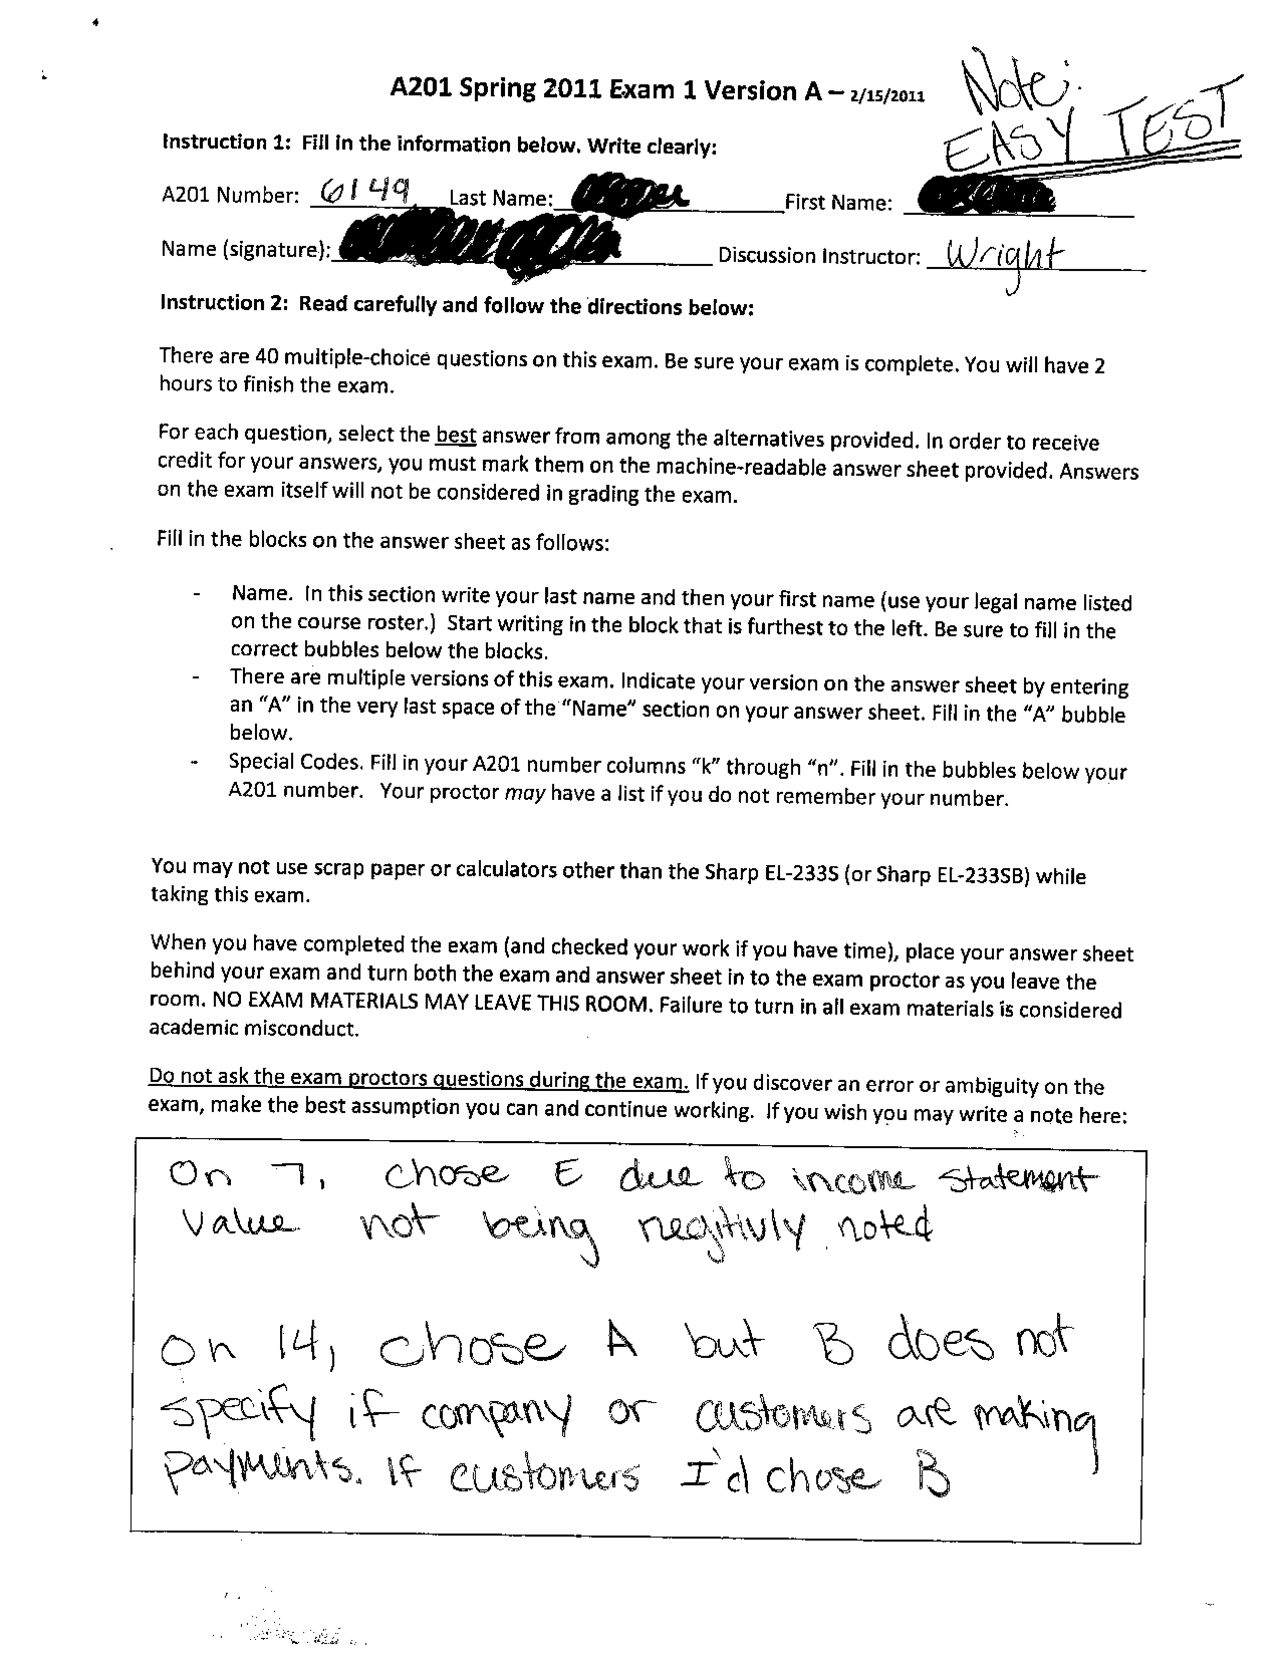 A201 Spring 2011 Exam 1 Version A – 2/15/2011
Note:
EASY TEST
Instruction 1: Fill in the information below. Write clearly:
A201 Number: 6149 Last Name: First Name:
Name (signature): Discussion Instructor: Wright
Instruction 2: Read carefully and follow the directions below:
There are 40 multiple-choice questions on this exam. Be sure your exam is complete. You will have 2
hours to finish the exam.
For each question, select the best answer from among the alternatives provided. In order to receive
credit for your answers, you must mark them on the machine-readable answer sheet provided. Answers
on the exam itself will not be considered in grading the exam.
Fill in the blocks on the answer sheet as follows:
- Name. In this section write your last name and then your first name (use your legal name listed
on the course roster.) Start writing in the block that is furthest to the left. Be sure to fill in the
correct bubbles below the blocks.
- There are multiple versions of this exam. Indicate your version on the answer sheet by entering
an “A” in the very last space of the “Name” section on your answer sheet. Fill in the “A” bubble
below.
- Special Codes. Fill in your A201 number columns “k” through “n”. Fill in the bubbles below your
A201 number. Your proctor may have a list if you do not remember your number.
You may not use scrap paper or calculators other than the Sharp EL-233S (or Sharp EL-233SB) while
taking this exam.
When you have completed the exam (and checked your work if you have time), place your answer sheet
behind your exam and turn both the exam and answer sheet in to the exam proctor as you leave the
room. NO EXAM MATERIALS MAY LEAVE THIS ROOM. Failure to turn in all exam materials is considered
academic misconduct.
Do not ask the exam proctors questions during the exam. If you discover an error or ambiguity on the
exam, make the best assumption you can and continue working. If you wish you may write a note here:
On 7, chose E due to income statement
value not being negitivly noted
On 14, chose A but B does not
specify if company or customers are making
payments. If customers I'd chose B